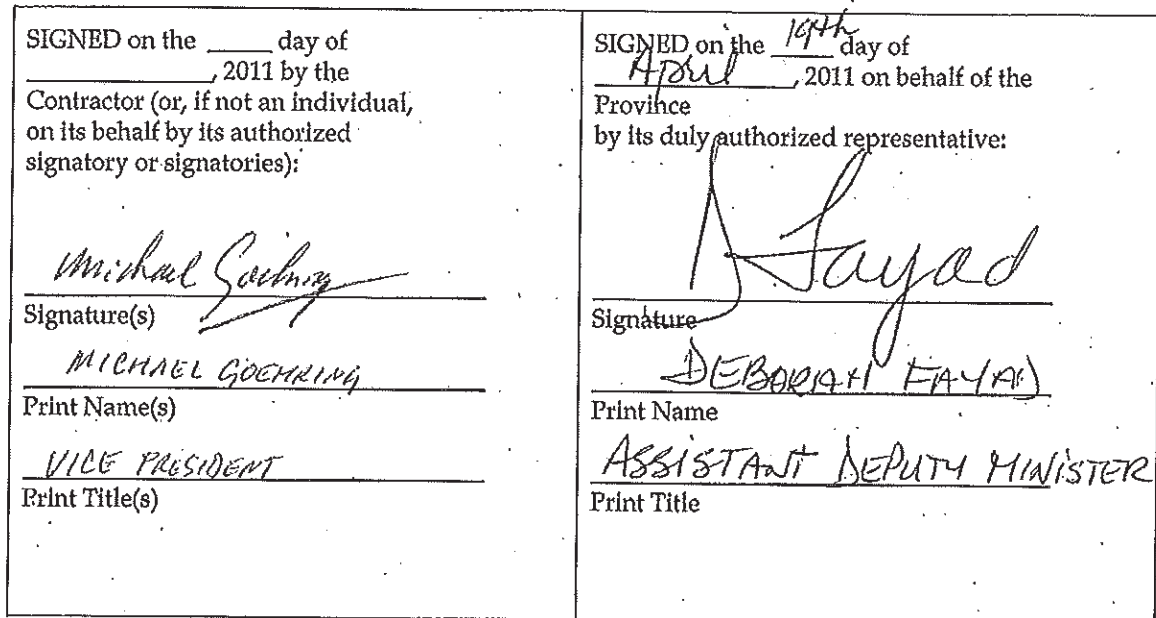 SIGNED on the _____ day of
_____________, 2011 by the
Contractor (or, if not an individual,
on its behalf by its authorized
signatory or signatories):
Michael Goehring
Signature(s)
MICHAEL GOEHRING
Print Name(s)
VICE PRESIDENT
Print Title(s)
SIGNED on the 19th day of
April, 2011 on behalf of the
Province
by its duly authorized representative:
D Fayad
Signature
DEBORAH FAYAD
Print Name
ASSISTANT DEPUTY MINISTER
Print Title